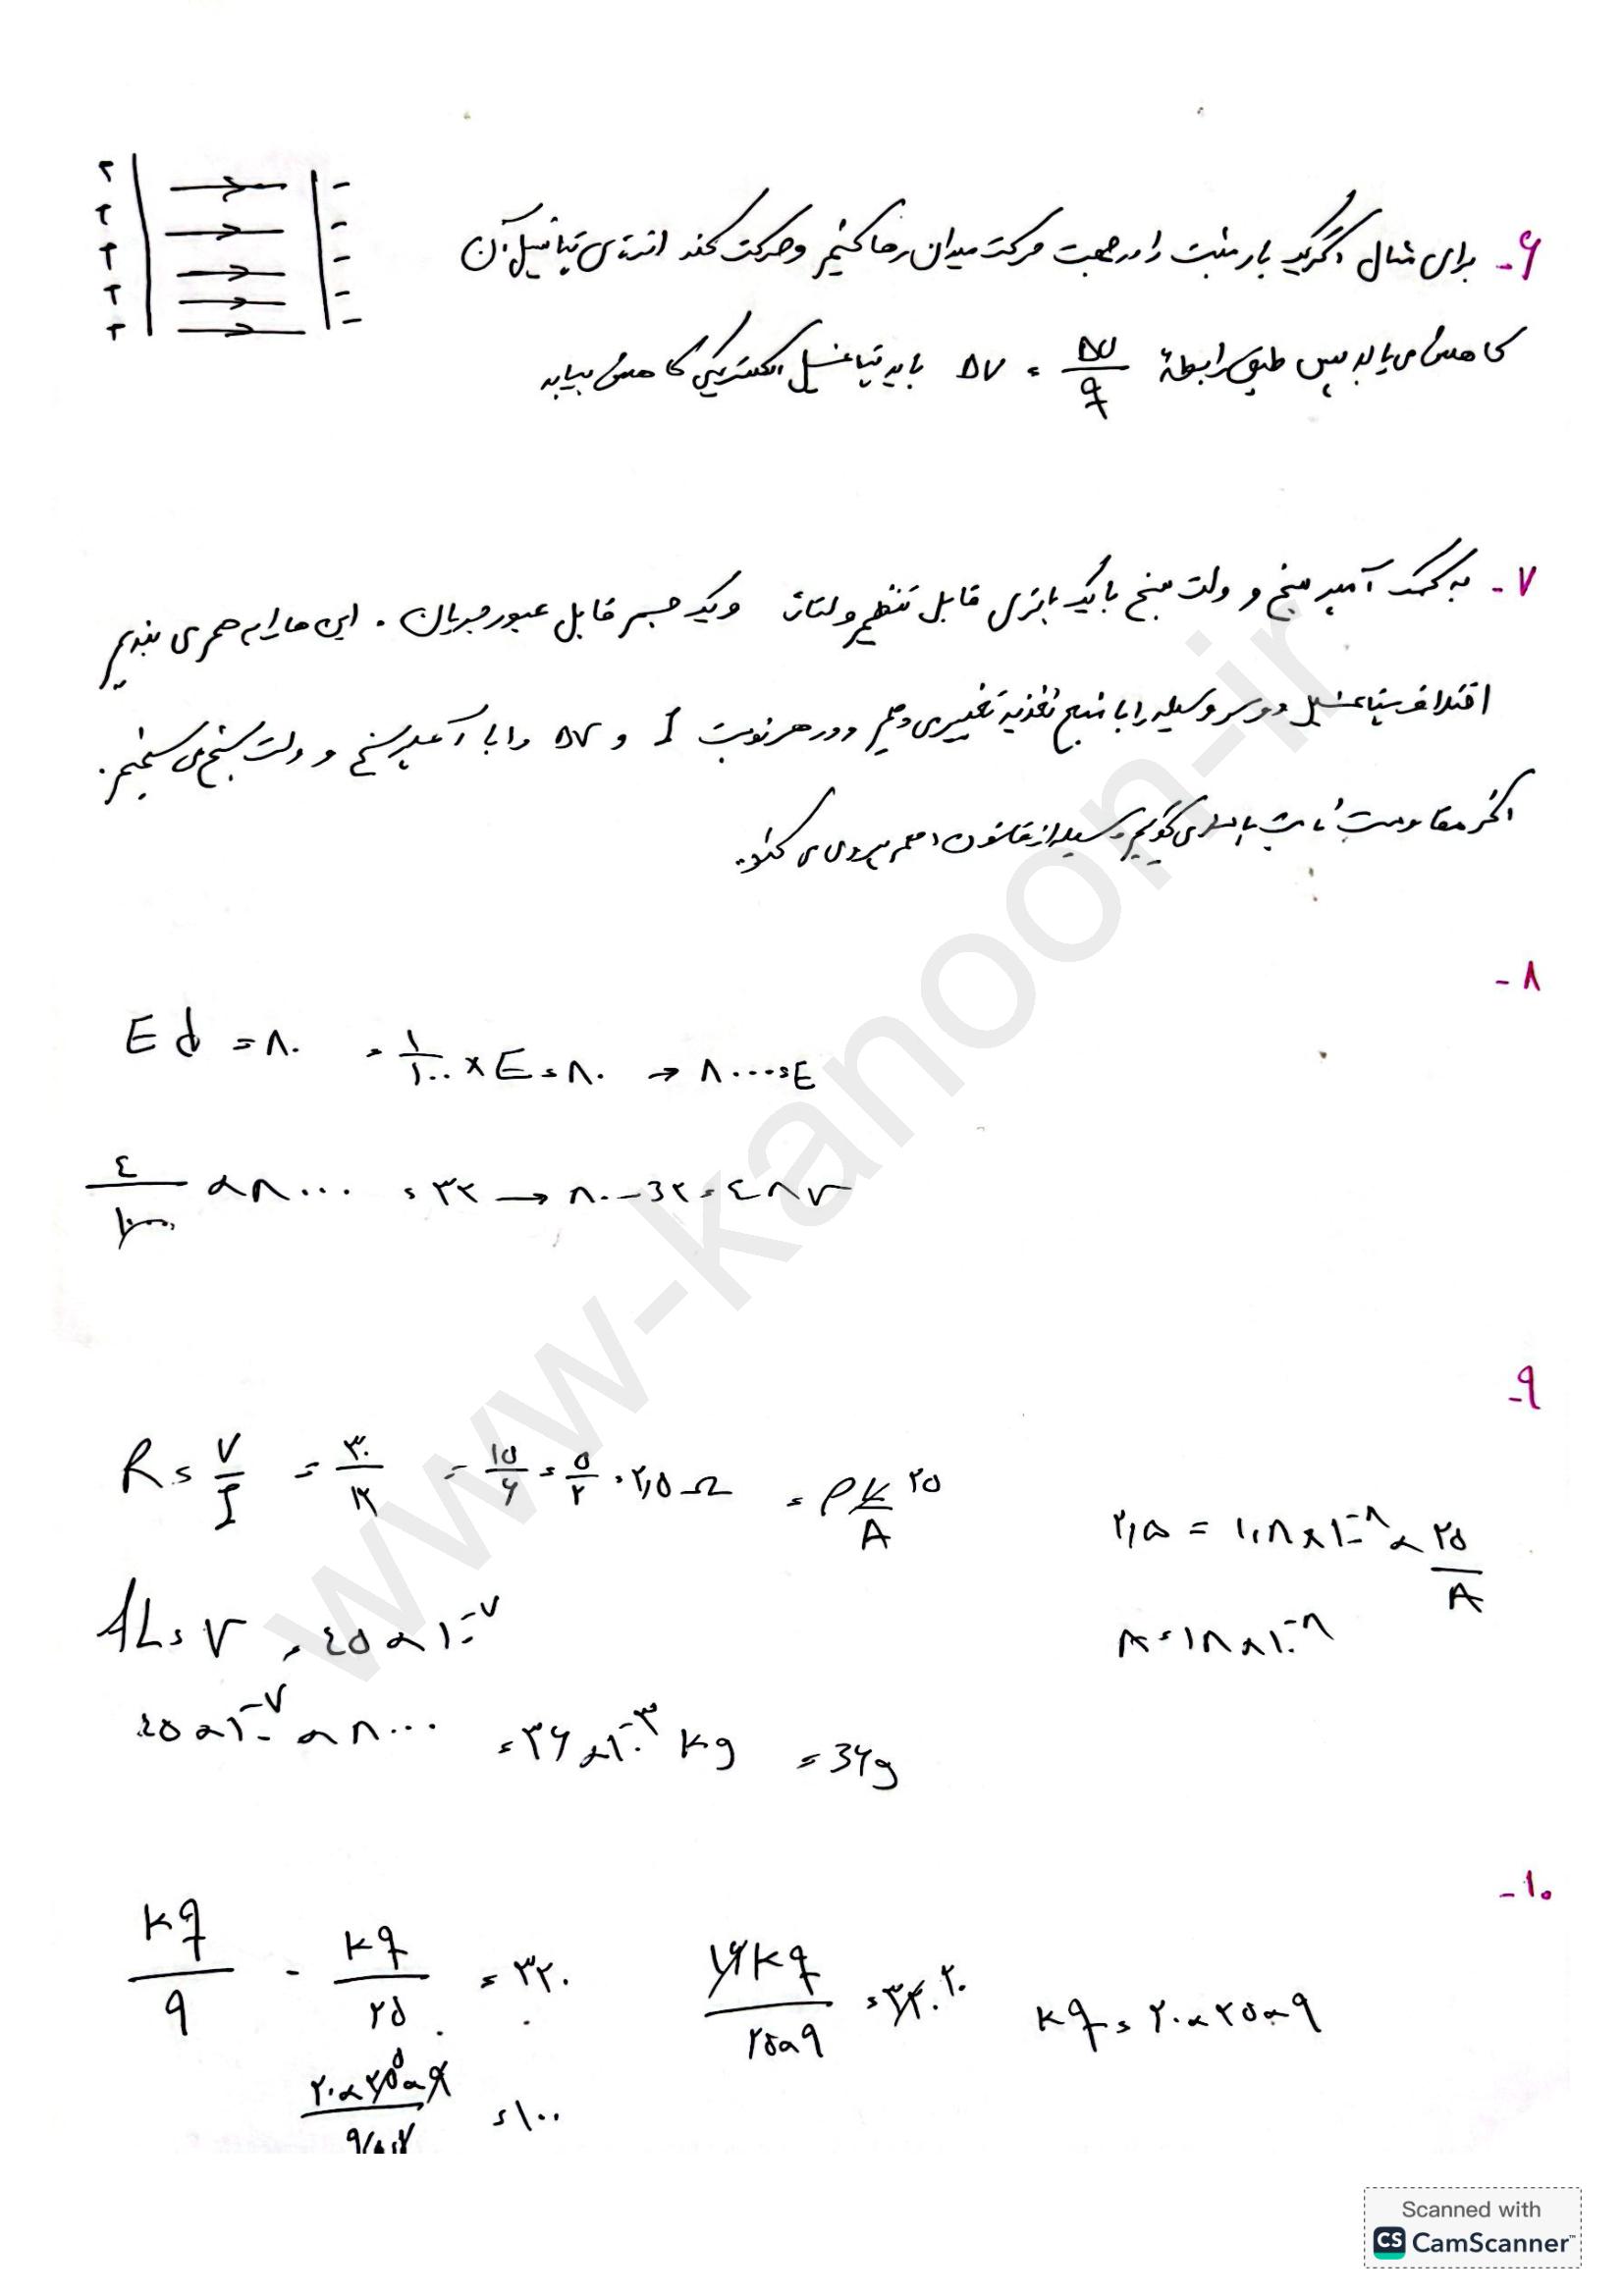 ۶- برای مثال اگر یک بار مثبت را در جهت حرکت میدان رها کنیم و حرکت کند انرژی پتانسیل آن
کاهش می یابد پس طبق رابطهٔ ΔV = ΔU/q باید پتانسیل الکتریکی کاهش بیابد
۷- به کمک آمپر سنج و ولت سنج با یک باتری قابل تنظیم ولتاژ و یک جسم قابل عبور جریان. این ها را به هم می بندیم
اختلاف پتانسیل دو سر وسیله را با منبع تغذیه تغییر می دهیم و در هر نوبت I و ΔV را با آمپرسنج و ولت سنج می سنجیم.
اگر مقاومت ثابت باشد می گوییم وسیله از قانون اهم پیروی می کند.
۸-
Ed = ۸۰ = ۱/۱۰۰ × E = ۸۰ → ۸۰۰۰ = E
× ۸۰۰۰ = ۳۲ → ۸۰ - ۳۲ = ۴۸ V
۹-
R = V/I = ۳۰/۱۲ = ۱۵/۶ = ۵/۲ = ۲,۵ Ω = ρL/A ۲۵
۲,۵ = ۱,۸ × ۱۰^-۸ × ۲۵/A
AL = V = ۴۵ × ۱۰^-۷
A = ۱۸ × ۱۰^-۸
۴۵ × ۱۰^-۷ × ۸۰۰۰ = ۳۶ × ۱۰^-۳ kg = ۳۶g
۱۰-
kq/۹ - kq/۲۵ = ۳۲۰
۱۶kq/۲۵×۹ = ۳۲۰ ۲۰
kq = ۲۰ × ۲۵ × ۹
۲۰ × ۲۵ × ۹ = ۱۰۰
www-kanoon-ir
Scanned with
CS CamScanner™